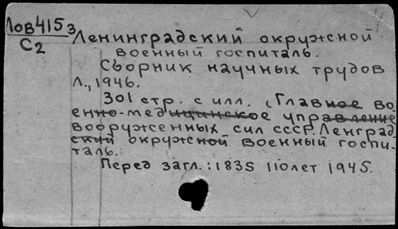 Лов415з
С2
Ленинградский окружной
военный госпиталь.
Сборник научных трудов
Л., 1946.
301 стр. с илл. (Главное во
енно-медицинское управление
вооруженных сил СССР. Ленград
ский окружной военный госпи-
таль.
Перед загл.: 1835 110лет 1945.